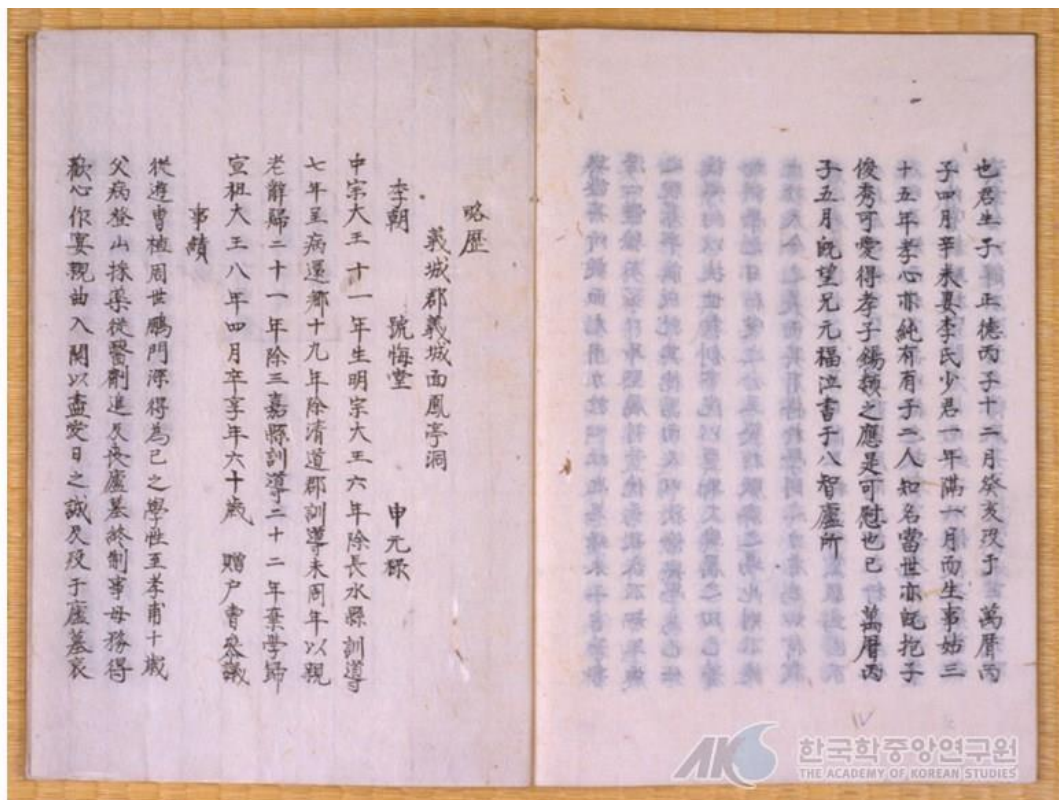 也君生子 正德丙子十二月癸亥歿于 萬曆丙
子四月辛未妻李氏少君一年滿六月而生事姑三
十五年孝心亦純有有子二人知名當世亦旣抱子
俊秀可愛得孝子錫類之應是可慰也已 萬曆丙
子五月旣望兄元福泣書于八智廬所
略歷
義城郡義城面鳳亭洞
李朝 號悔堂 申元祿
中宗大王十一年生明宗大王六年除長水縣訓導
七年呈病還鄉十九年除清道郡訓導未周年以親
老辭歸二十一年除三嘉縣訓導二十二年棄學歸
宣祖大王八年四月卒享年六十歲 贈户曹參議
事績
從遊曺植周世鵬門深得為己之學性至孝甫十歲
父病登山採藥從醫劑進及喪廬墓終制事母務得
歡心作宴親曲入閣以盡愛日之誠及歿于廬墓哀
한국학중앙연구원
THE ACADEMY OF KOREAN STUDIES